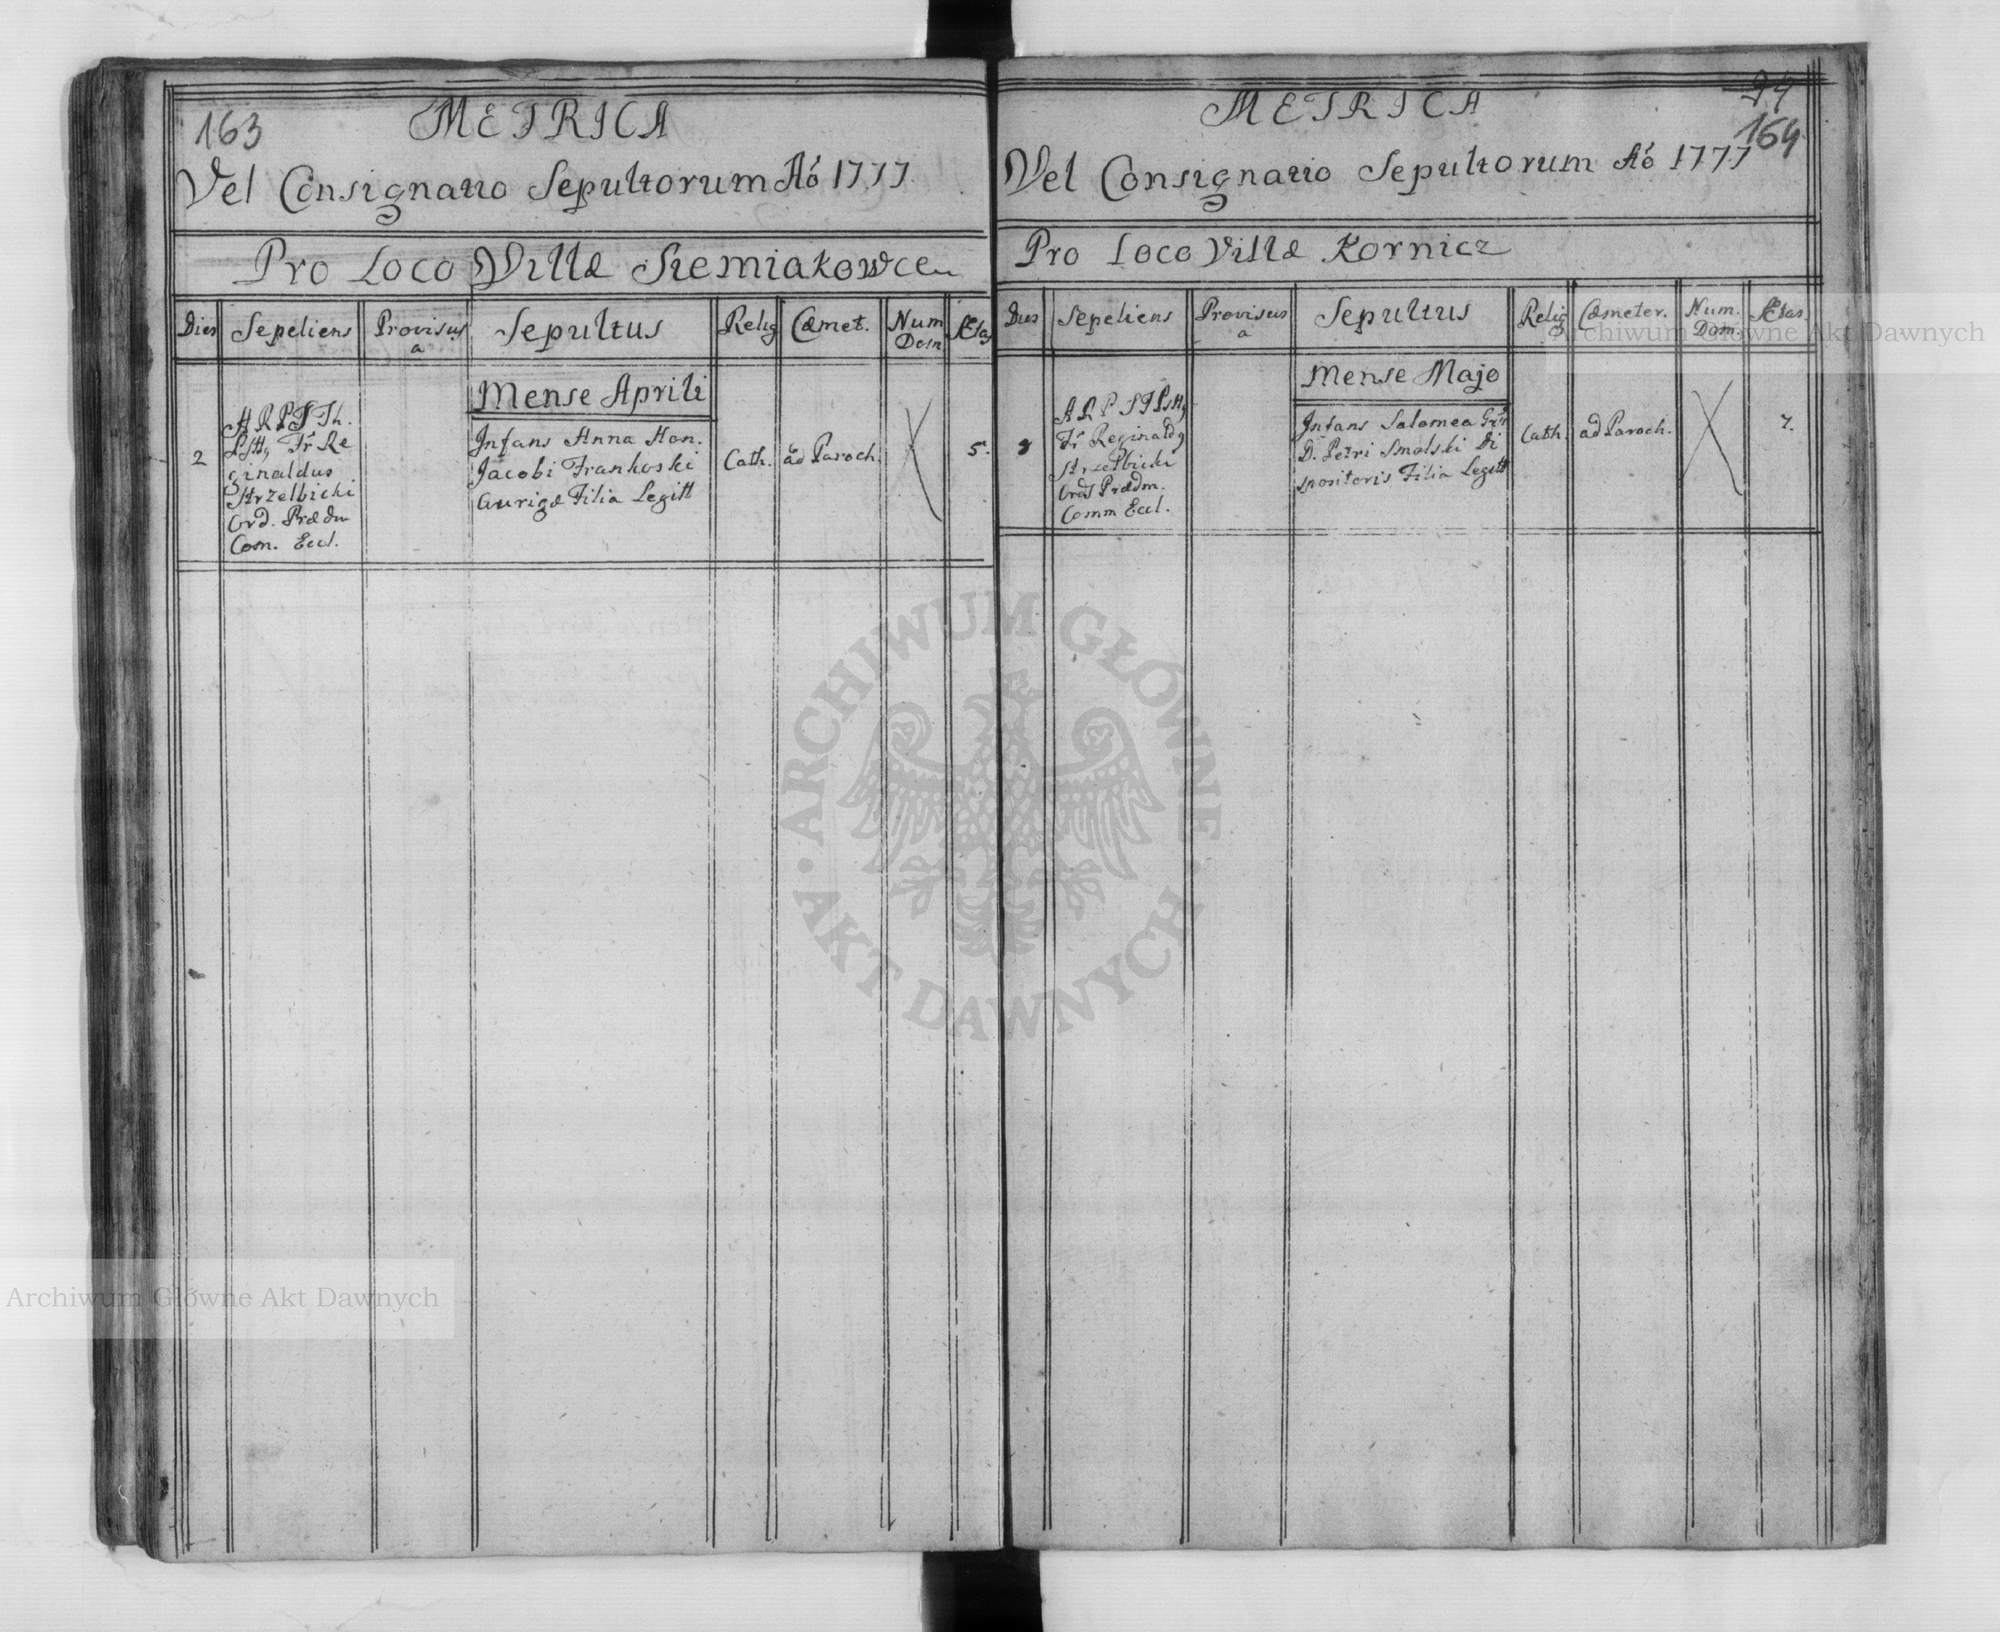 163
METRICA
Vel Consignatio Sepultorum Aō 1777
Pro Loco Villæ Siemiakowce
Dies Sepeliens Provisus a Sepultus Relig Cæmet. Num Dom Ætas
Mense Aprili
2
A R P S Th.
Fr Re
ginaldus
Strzelbicki
Ord. Prædm
Com. Eccl.
Infans Anna Hon.
Jacobi Frankoski
Aurigæ Filia Legitt
Cath. ad Paroch. X 5.
94
164
METRICA
Vel Consignatio Sepultorum Aō 1777
Pro Loco Villæ Kornicz
Dies Sepeliens Provisus a Sepultus Relig Cæmeter. Num. Dom. Ætas.
Mense Majo
A R P S T
Fr Reginaldg
Strzelbicki
Ord Prædm.
Comm Eccl.
Infans Salomea
D. Petri Smolski Di
spositoris Filia Legitt
Cath. ad Paroch. X 7.
Archiwum Główne Akt Dawnych
ARCHIWUM GŁÓWNE
AKT DAWNYCH
Archiwum Główne Akt Dawnych